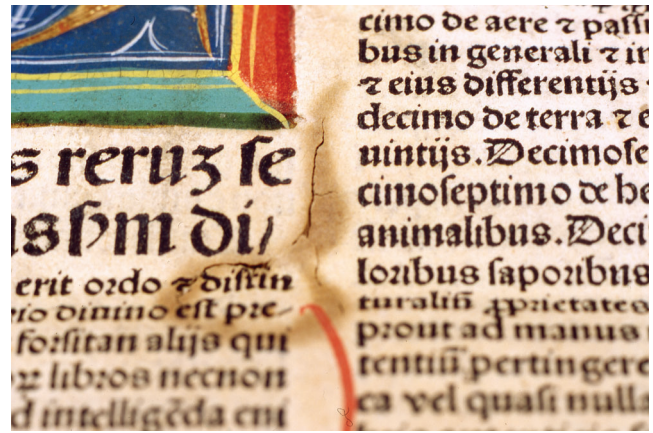 s reruʒ ſe
ſħm di/
erit ordo ⁊ diſtin
rio diuino eſt pre⸗
forſitan alijs qui
oꝝ libros necnon
d intelligẽda eni
cimo de aere ⁊ paſſi
bus in generali ⁊ in
⁊ eius differentijs
decimo de terra ⁊ e
uintijs. Decimoſe
cimoſeptimo de be
animalibus. Deci
loꝛibus ſapoꝛibus
turaliũ ꝓprietates
prout ad manus
tentiũ pertingere
ea vel quaſi nulla